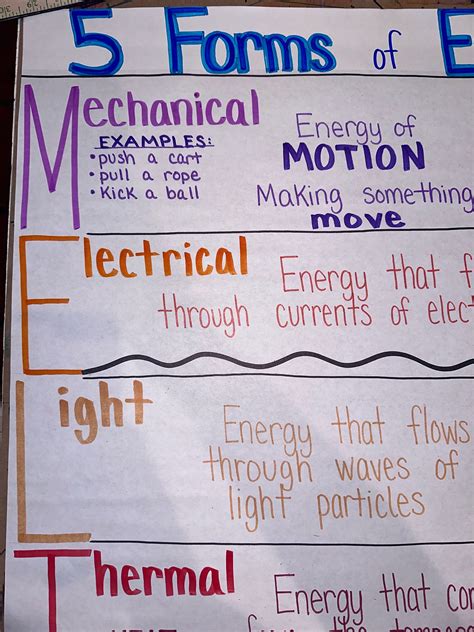 5 Forms of E
Mechanical
EXAMPLES:
• push a cart
• pull a rope
• Kick a ball
Energy of
MOTION
Making something
move
Electrical
Energy that f
through currents of elect
Light
Energy that flows
through waves of
light particles
Thermal
Energy that con